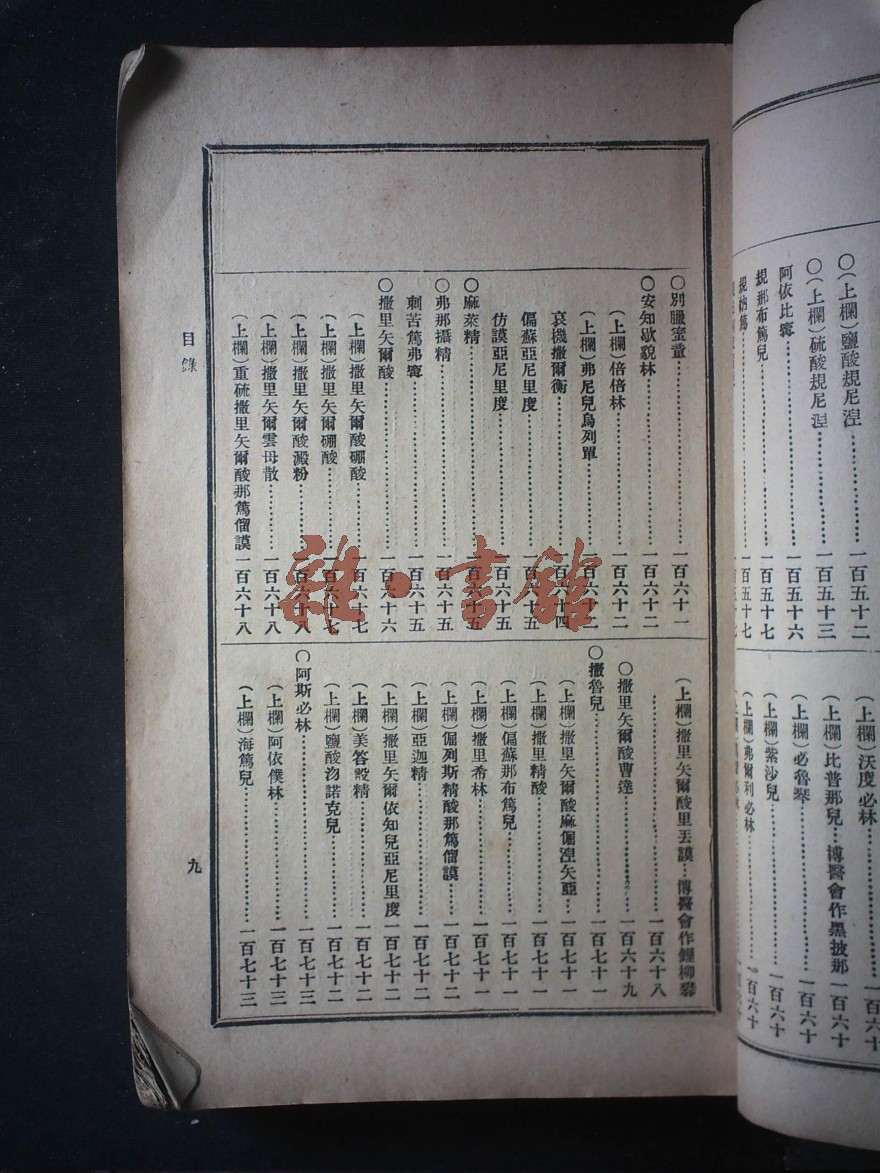 〇(上欄)鹽酸規尼涅……一百五十二
〇(上欄)硫酸規尼涅……一百五十三
阿依比寗……一百五十六
規那布篤兒……一百五十七
規納篤……一百五十七
(上欄)沃度必林……一百六十
(上欄)比普那兒…博醫會作黑披那一百六十
(上欄)必魯琴……一百六十
(上欄)紫沙兒……一百六十
(上欄)弗爾利必林……一百六十
〇別臘蜜童……一百六十一
〇安知歇貌林……一百六十二
(上欄)倍倍林……一百六十二
(上欄)弗尼兒烏列單……一百六十二
哀機撒爾衡……一百六十四
偏蘇亞尼里度……一百六十五
仿謨亞尼里度……一百六十五
〇麻萊精……一百六十五
〇弗那攝精……一百六十五
刺苦篤弗寗……一百六十五
〇撒里矢爾酸……一百六十六
(上欄)撒里矢爾酸硼酸……一百六十七
(上欄)撒里矢爾硼酸……一百六十七
(上欄)撒里矢爾酸澱粉……一百六十八
(上欄)撒里矢爾雲母散……一百六十八
(上欄)重硫撒里矢爾酸那篤僧謨一百六十八
(上欄)撒里矢爾酸里丟謨…博醫會作鋰柳礬
……一百六十八
〇撒里矢爾酸曹達……一百六十九
〇撒魯兒……一百七十一
(上欄)撒里矢爾酸麻倔涅矢亞……一百七十一
(上欄)撒里精酸……一百七十一
(上欄)偏蘇那布篤兒……一百七十一
(上欄)撒里希林……一百七十一
(上欄)倔列斯精酸那篤僧謨……一百七十二
(上欄)亞迦精……一百七十二
(上欄)撒里矢爾依知兒亞尼里度一百七十二
(上欄)美答設精……一百七十二
(上欄)鹽酸沕諾克兒……一百七十二
〇阿斯必林……一百七十三
(上欄)阿依僕林……一百七十三
(上欄)海篤兒……一百七十三
目錄
九
雜·書館